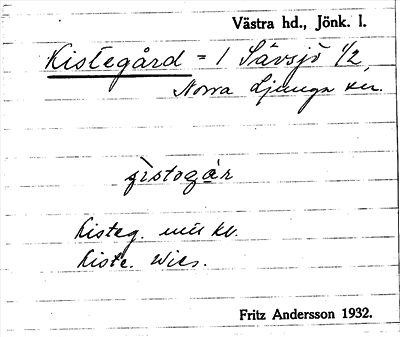 Västra hd., Jönk. l.
Kistegård = 1 Sävsjö 1/2
Norra Ljunga sn.
Kisteg.
Kiste. Wies.
Fritz Andersson 1932.